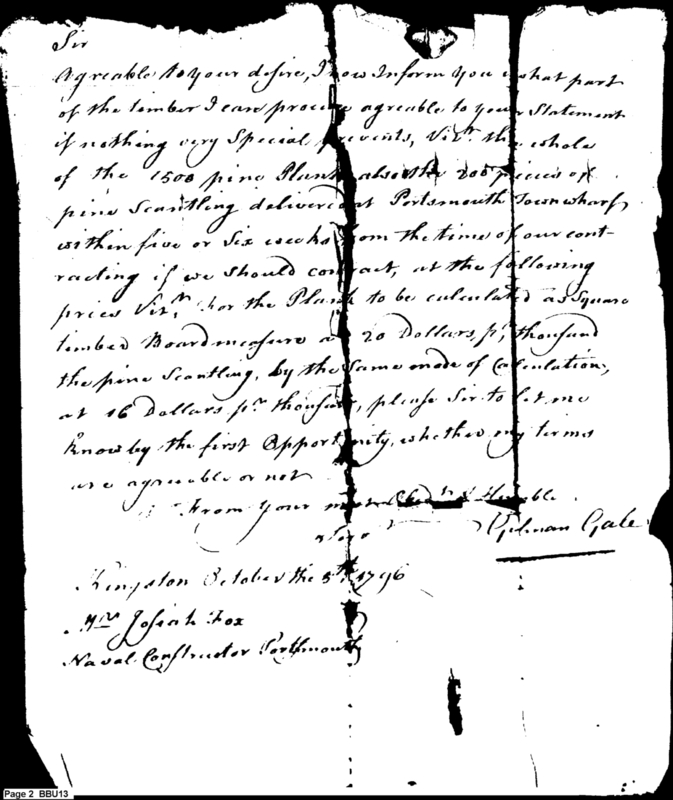 Sir
Agreable to your desire, I now Inform you what part
of the timber I can procure agreable to your Statement
if nothing very Special prevents, Vizt. the whole
of the 1500 pine Plank also the 200 pieces of
pine Scantling delivered at Portsmouth Town wharf,
within five or Six weeks from the time of our cont-
racting if we should contract, at the following
prices Vizt. For the Plank to be calculated as Square
timber Board measure at 20 Dollars pr. thousand
the pine Scantling, by the Same mode of Calculation,
at 16 Dollars pr. thousand, please Sir to let me
know by the first Opportunity, whether my terms
are agreable or not
From your most Obedt. & Humble
Gilman Gale
Kingston October the 5th. 1796
Mr. Josiah Fox
Naval Constructor Portsmouth
Page 2 BBU13